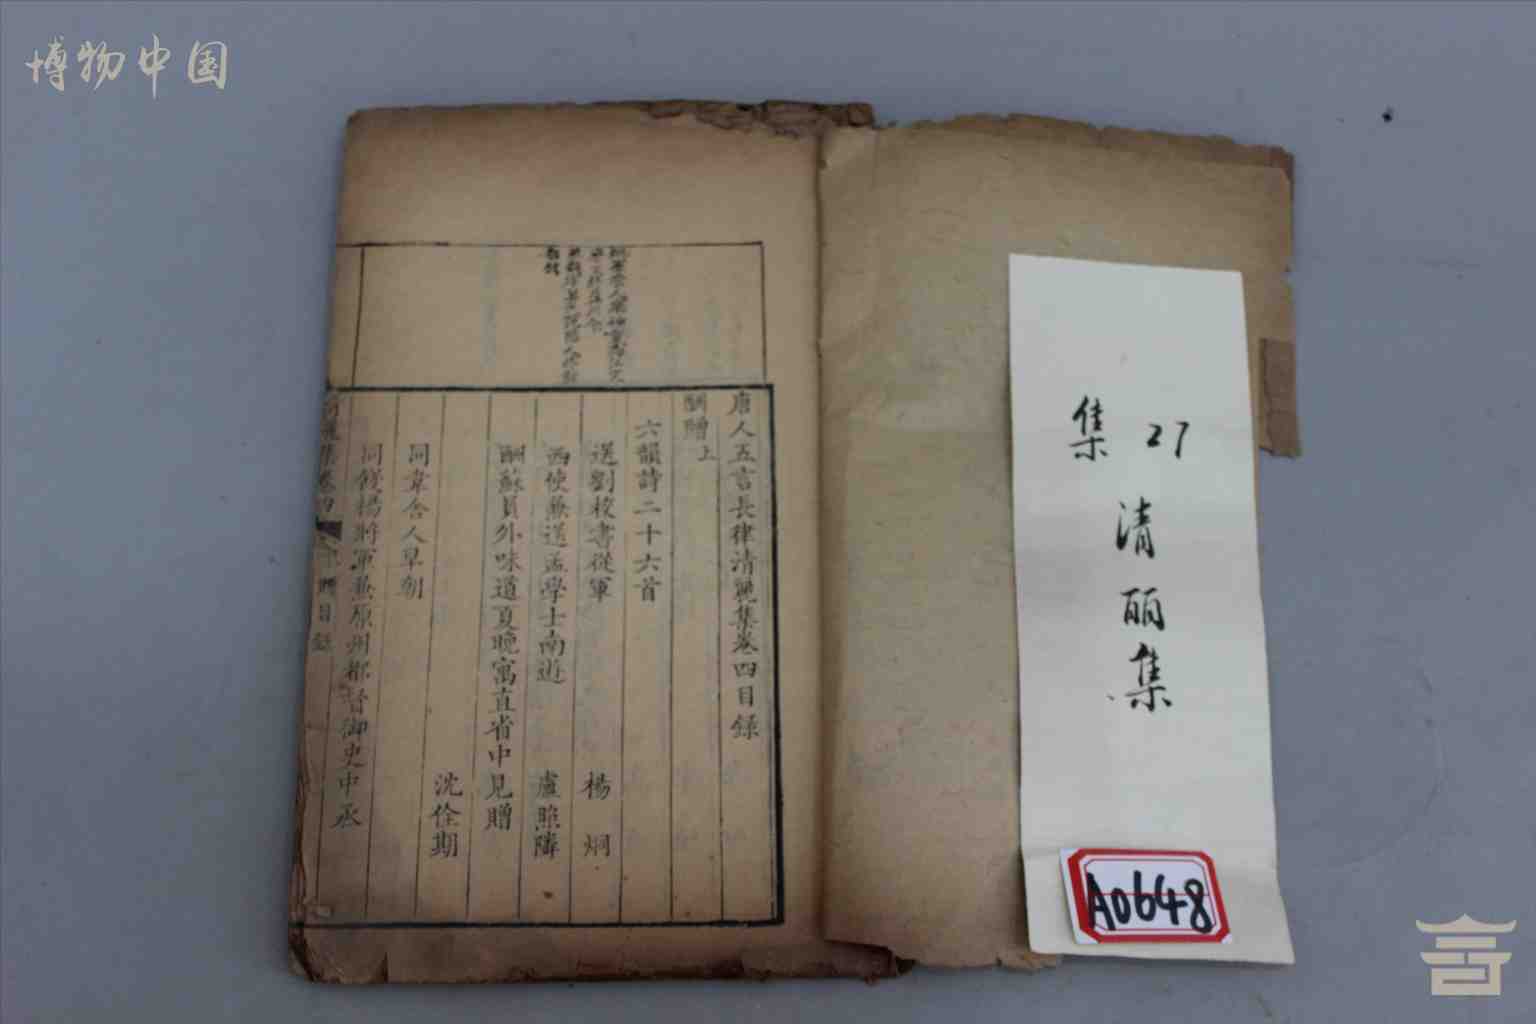 博物中国
唐人五言長律清麗集卷四目錄
酬贈上
六韻詩二十六首
送劉校書從軍 楊烱
西使兼送孟學士南遊 盧照隣
酬蘇員外味道夏晚寓直省中見贈
沈佺期
同韋舍人早朝
同餞楊將軍兼原州都督御史中丞
集 27
清丽集
A0648